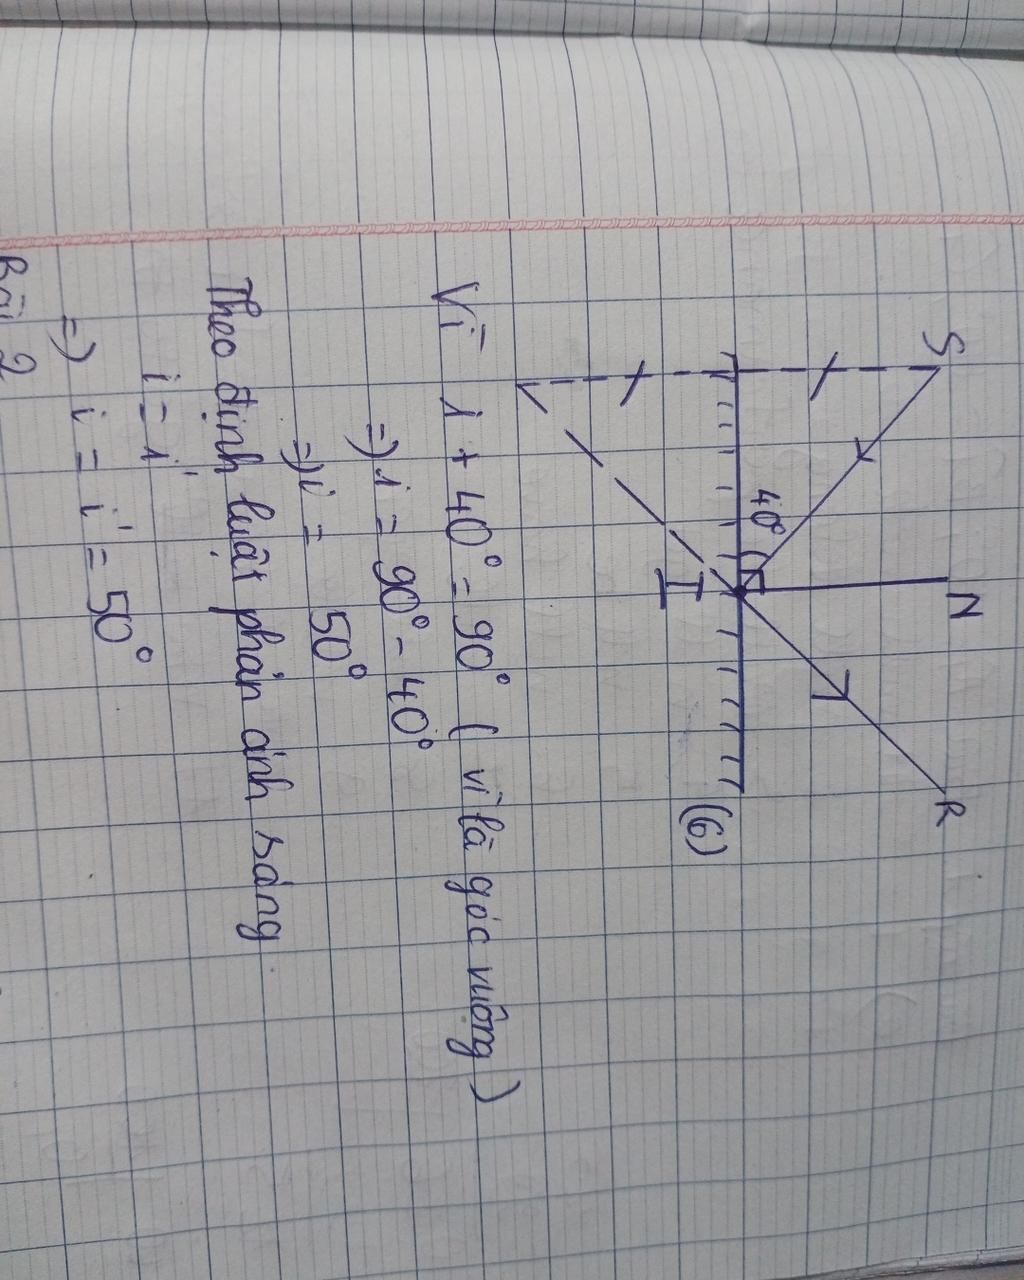 S
N
R
40°
I
(6)
Vì i + 40° = 90° ( vì là góc vuông )
=) i = 90° - 40°
=) i = 50°
Theo định luật phản ánh sáng
i = i'
=) i = i' = 50°
Bài 2